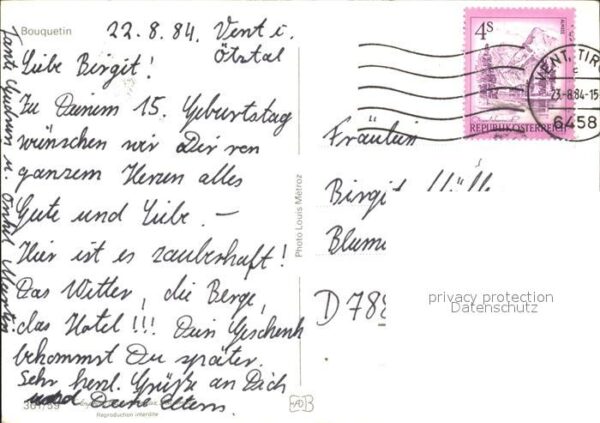 Bouquetin
22.8.84. Vent i.
Ötztal
Liebe Birgit!
Zu Deinem 15. Geburtstag
wünschen wir Dir von
ganzem Herzen alles
Gute und Liebe. —
Hier ist es zauberhaft!
Das Wetter, die Berge,
das Hotel!!! Dein Geschenk
bekommst Du später.
Sehr herzl. Grüße an Dich
und Deine Eltern.
Tante u. Onkel
301/59
Reproduction interdite
Photo Louis Métroz
4S
REPUBLIK ÖSTERREICH
VENT, TIRO
23.-8.84-15
6458
Fräulein
Birgit
Blume
D 788
privacy protection
Datenschutz